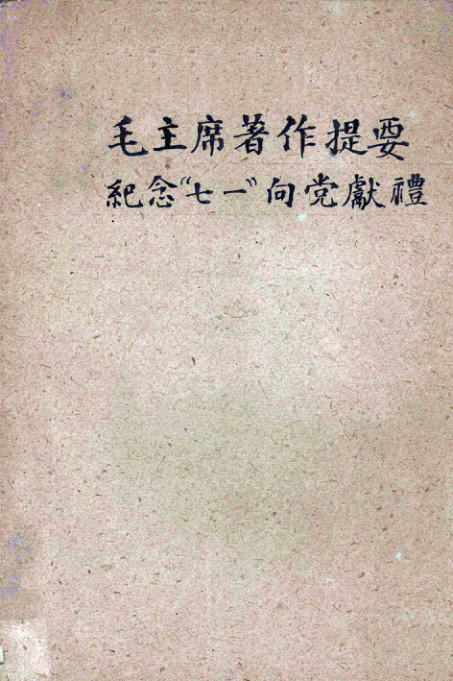 毛主席著作提要
紀念“七一”向党獻禮